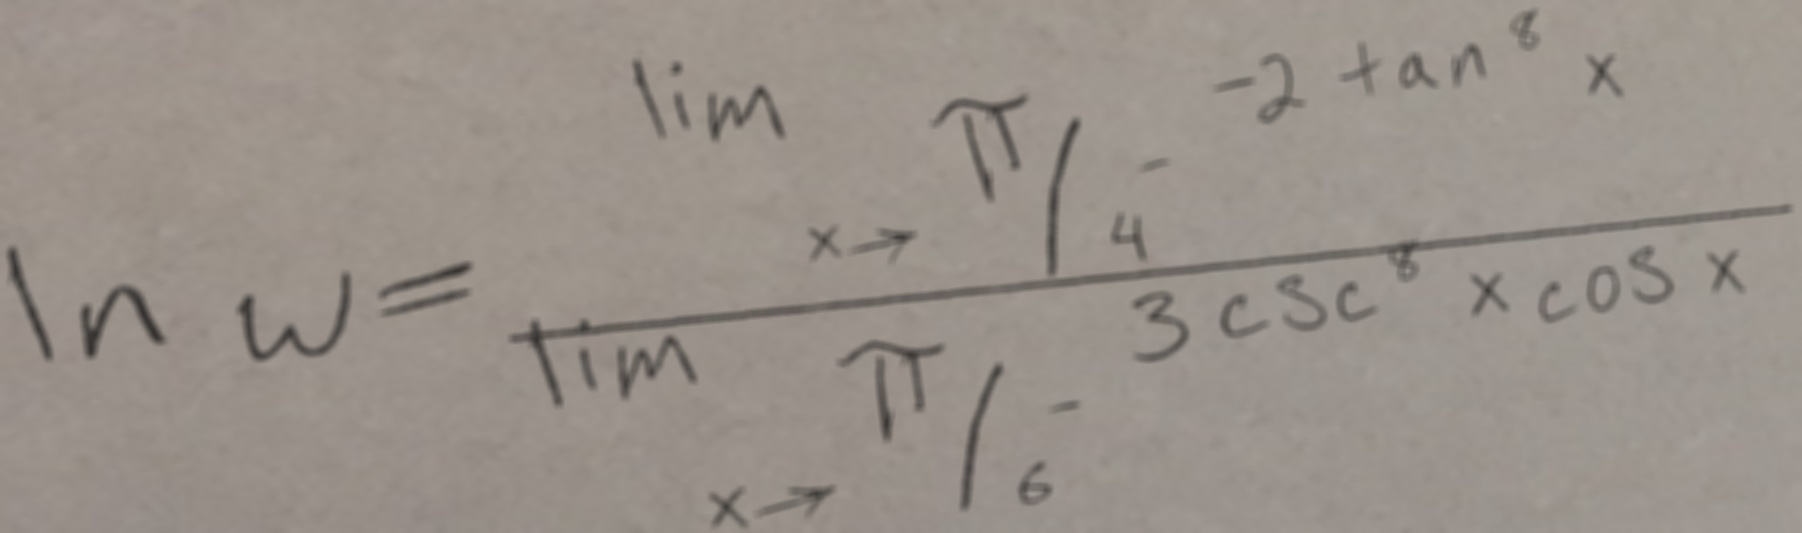 ln w = \frac{\lim_{x \to \pi/4^-} -2 \tan^8 x}{\lim_{x \to \pi/6^-} 3 \csc^8 x \cos x}